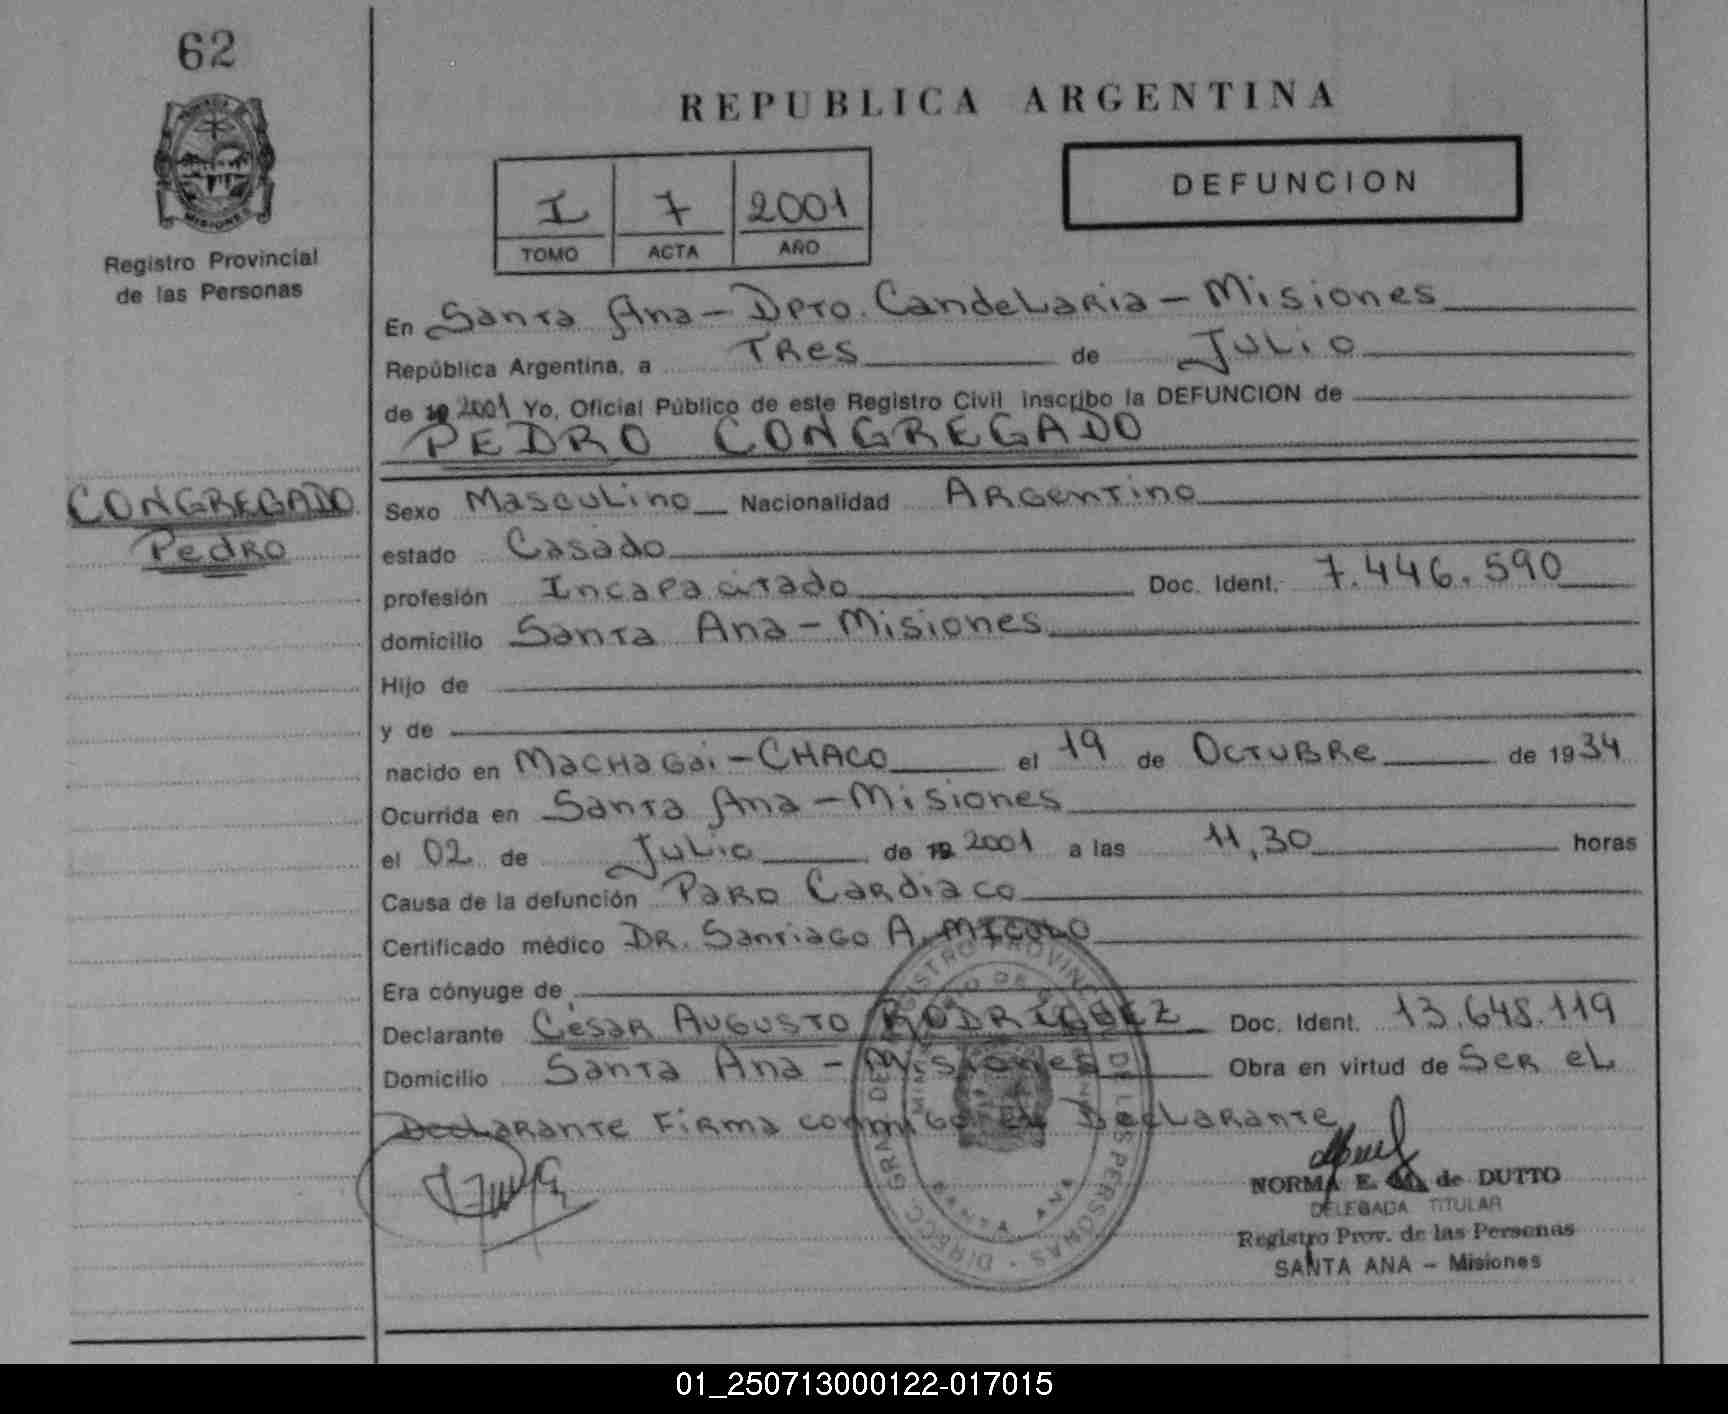 62
REPUBLICA ARGENTINA
MISIONES
Registro Provincial
de las Personas
DEFUNCION
I 7 2001
TOMO ACTA AÑO
En Santa Ana - Dpto. Candelaria - Misiones
República Argentina, a Tres de Julio
de 19 2001 Yo, Oficial Público de este Registro Civil inscribo la DEFUNCION de
PEDRO CONGREGADO
CONGREGADO
Pedro
Sexo Masculino Nacionalidad Argentino
estado Casado
profesión Incapacitado Doc. Ident. 7.446.590
domicilio Santa Ana - Misiones
Hijo de
y de
nacido en Machagai - CHACO el 19 de Octubre de 1934
Ocurrida en Santa Ana - Misiones
el 02 de Julio de 19 2001 a las 11,30 horas
Causa de la defunción Paro Cardiaco
Certificado médico DR. Santiago A.
Era cónyuge de
Declarante César Augusto RODRIGUEZ Doc. Ident. 13.648.119
Domicilio Santa Ana - Misiones Obra en virtud de Ser el
Declarante Firma conmigo el Declarante
DIRECC. GRAL. DE REGISTRO PROVINC. DE LAS PERSONAS
SANTA ANA
NORMA E. M. de DUTTO
DELEGADA TITULAR
Registro Prov. de las Personas
SANTA ANA - Misiones
01_250713000122-017015